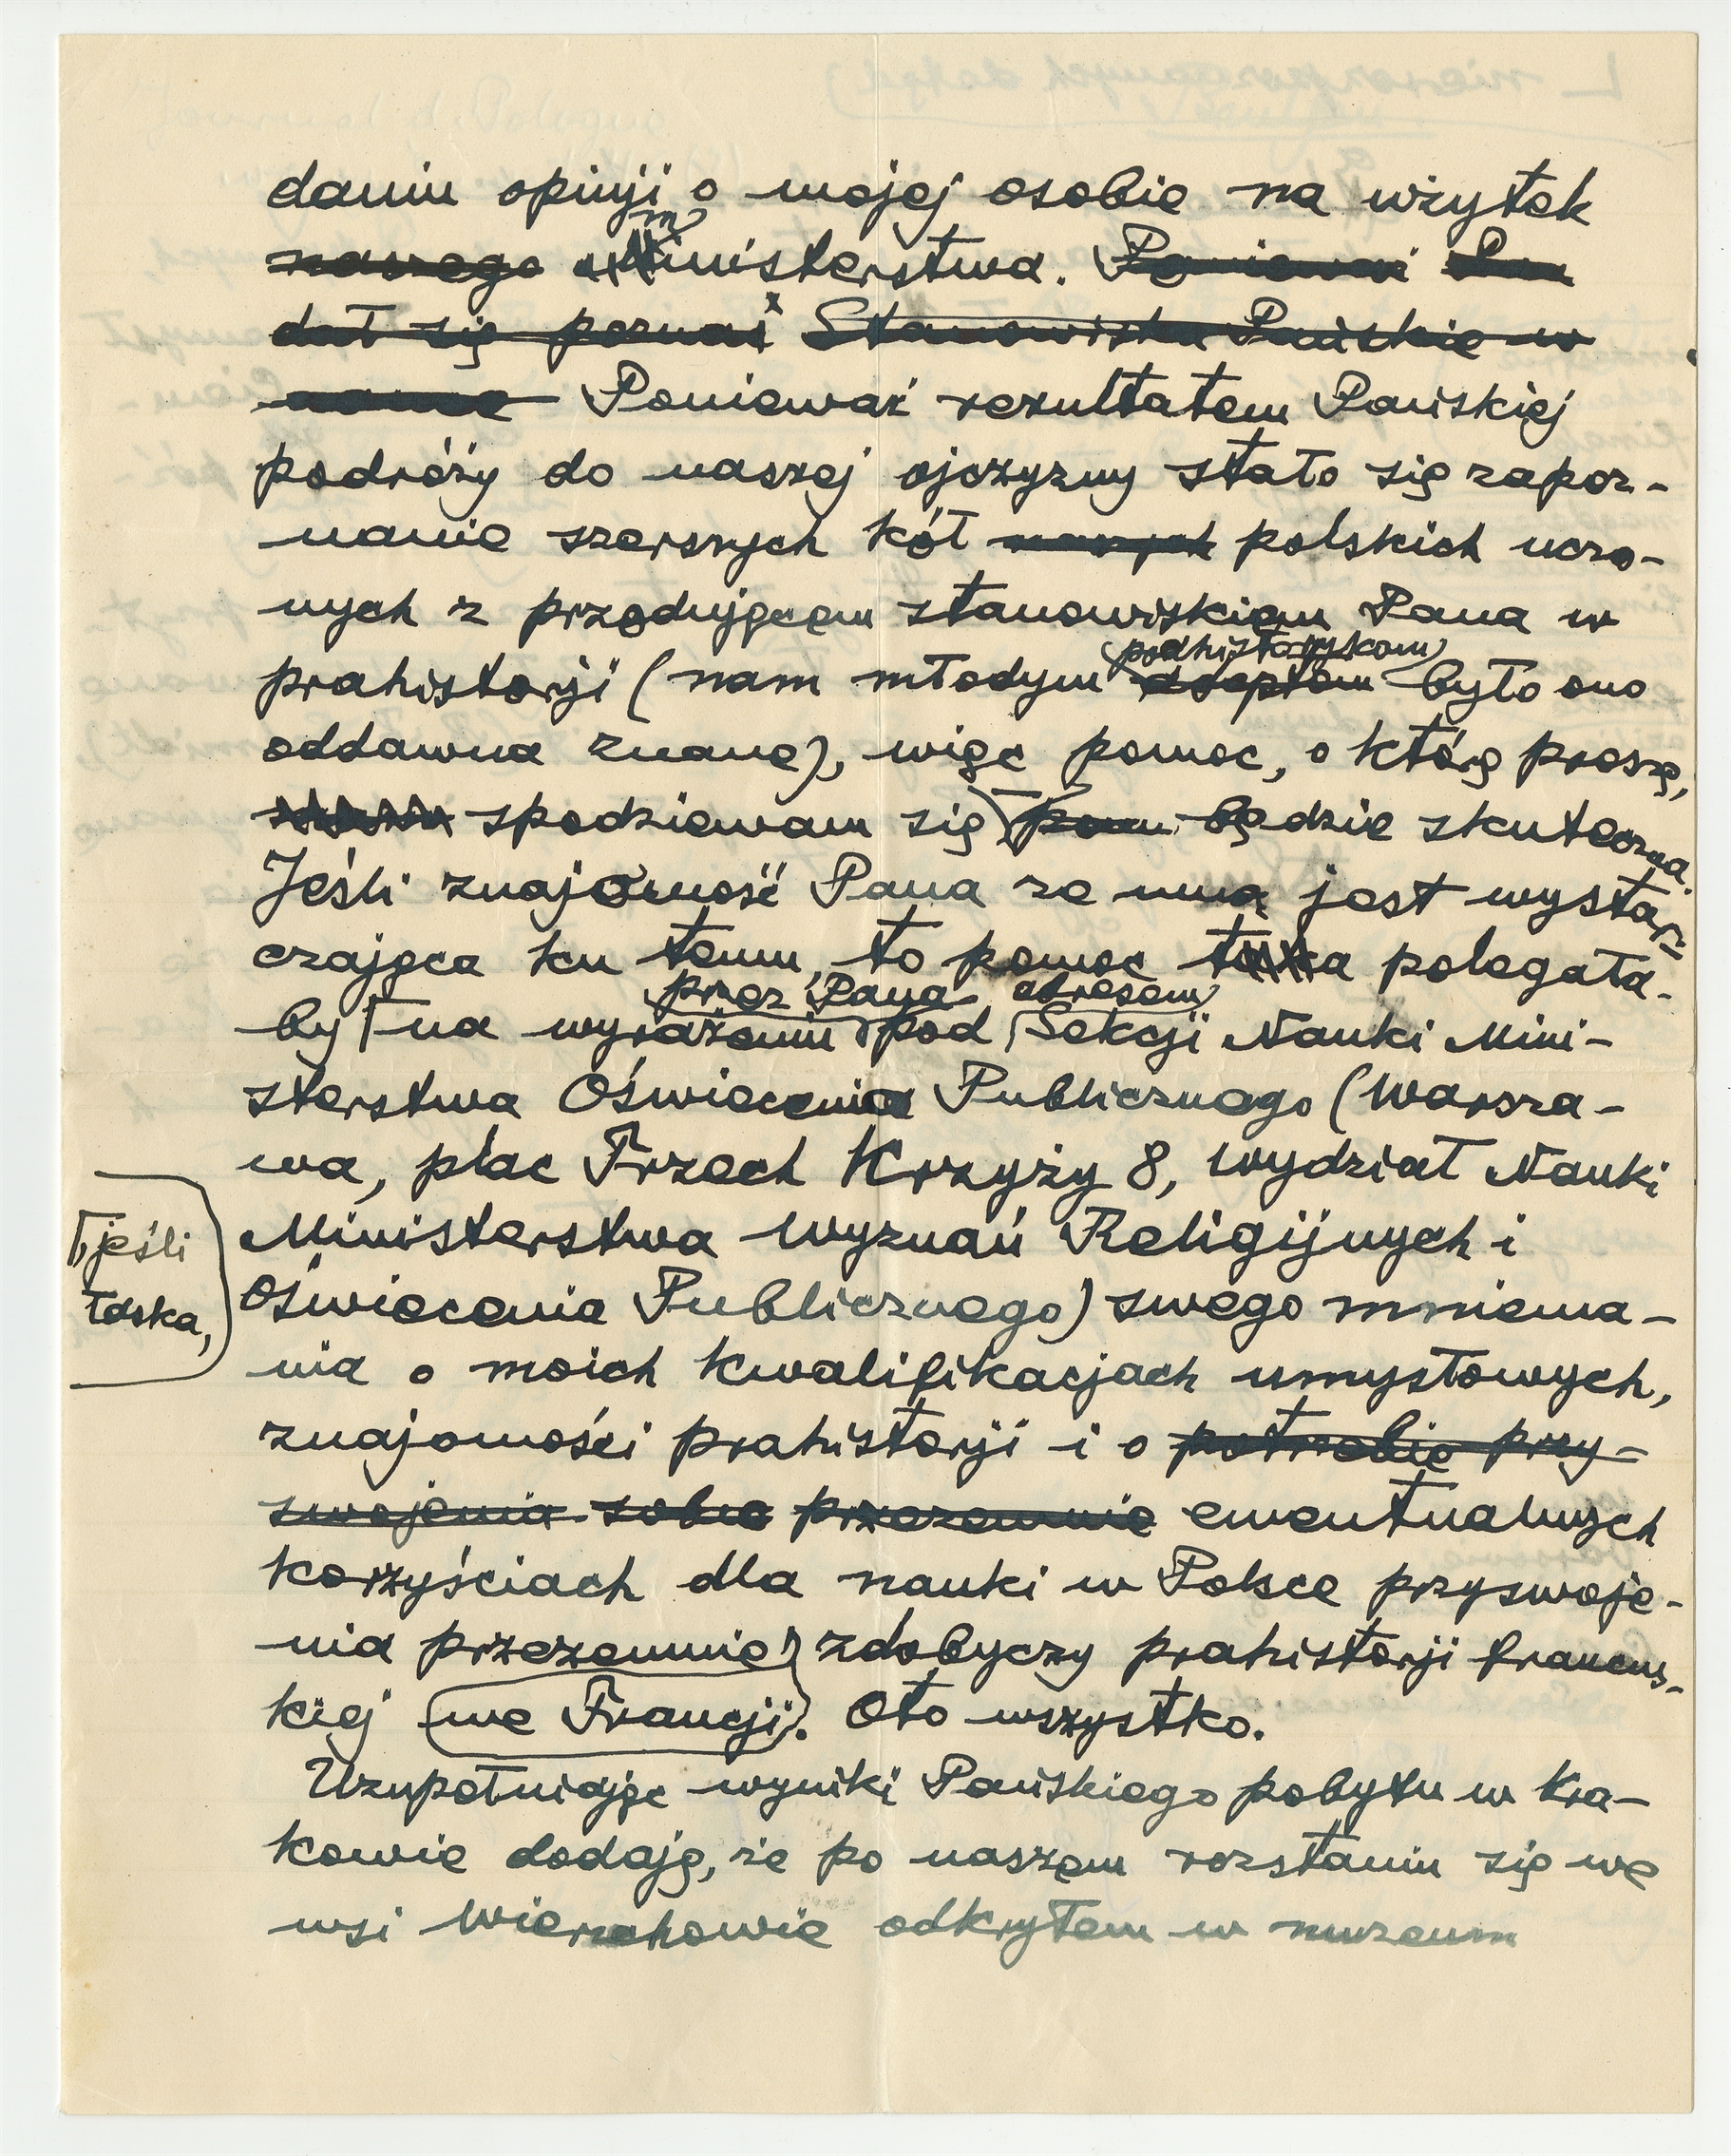 daniu opinji o mojej osobie na wżytek
naszego m Ministerstwa. Ponieważ Pan
dał się poznać Stanowisko Pańskie w
Ponieważ rezultatem Pańskiej
podróży do naszej ojczyzny stało się zapoz-
nanie szerszych kół naszych polskich uczo-
nych z przodującem stanowiskiem Pana w
podhistorykom
prahistorji (nam młodym adeptom było ono
oddawna znane), więc pomoc, o którą proszę,
spodziewam się będzie skuteczna.
Jeśli znajomość Pana ze mną jest wystar-
czająca ku temu, to pomoc taka polegała-
przez Pana adresem
by na wyrażeniu pod Sekcji Nauki Mini-
sterstwa Oświecenia Publicznego (Warsza-
wa, plac Trzech Krzyży 8, Wydział Nauki
Ministerstwa Wyznań Religijnych i
jeśli
łaska,
Oświecenia Publicznego) swego mniema-
nia o moich kwalifikacjach umysłowych,
znajomości prahistorji i o potrzebie przy-
swojenia sobie przezemnie ewentualnych
korzyściach dla nauki w Polsce przyswoje-
nia przezemnie zdobyczy prahistorji francus-
kiej we Francji. Oto wszystko.
Uzupełniając wyniki Pańskiego pobytu w Kra-
kowie dodaję, że po naszem rozstaniu się we
wsi Wierzchowie odkryłem w muzeum